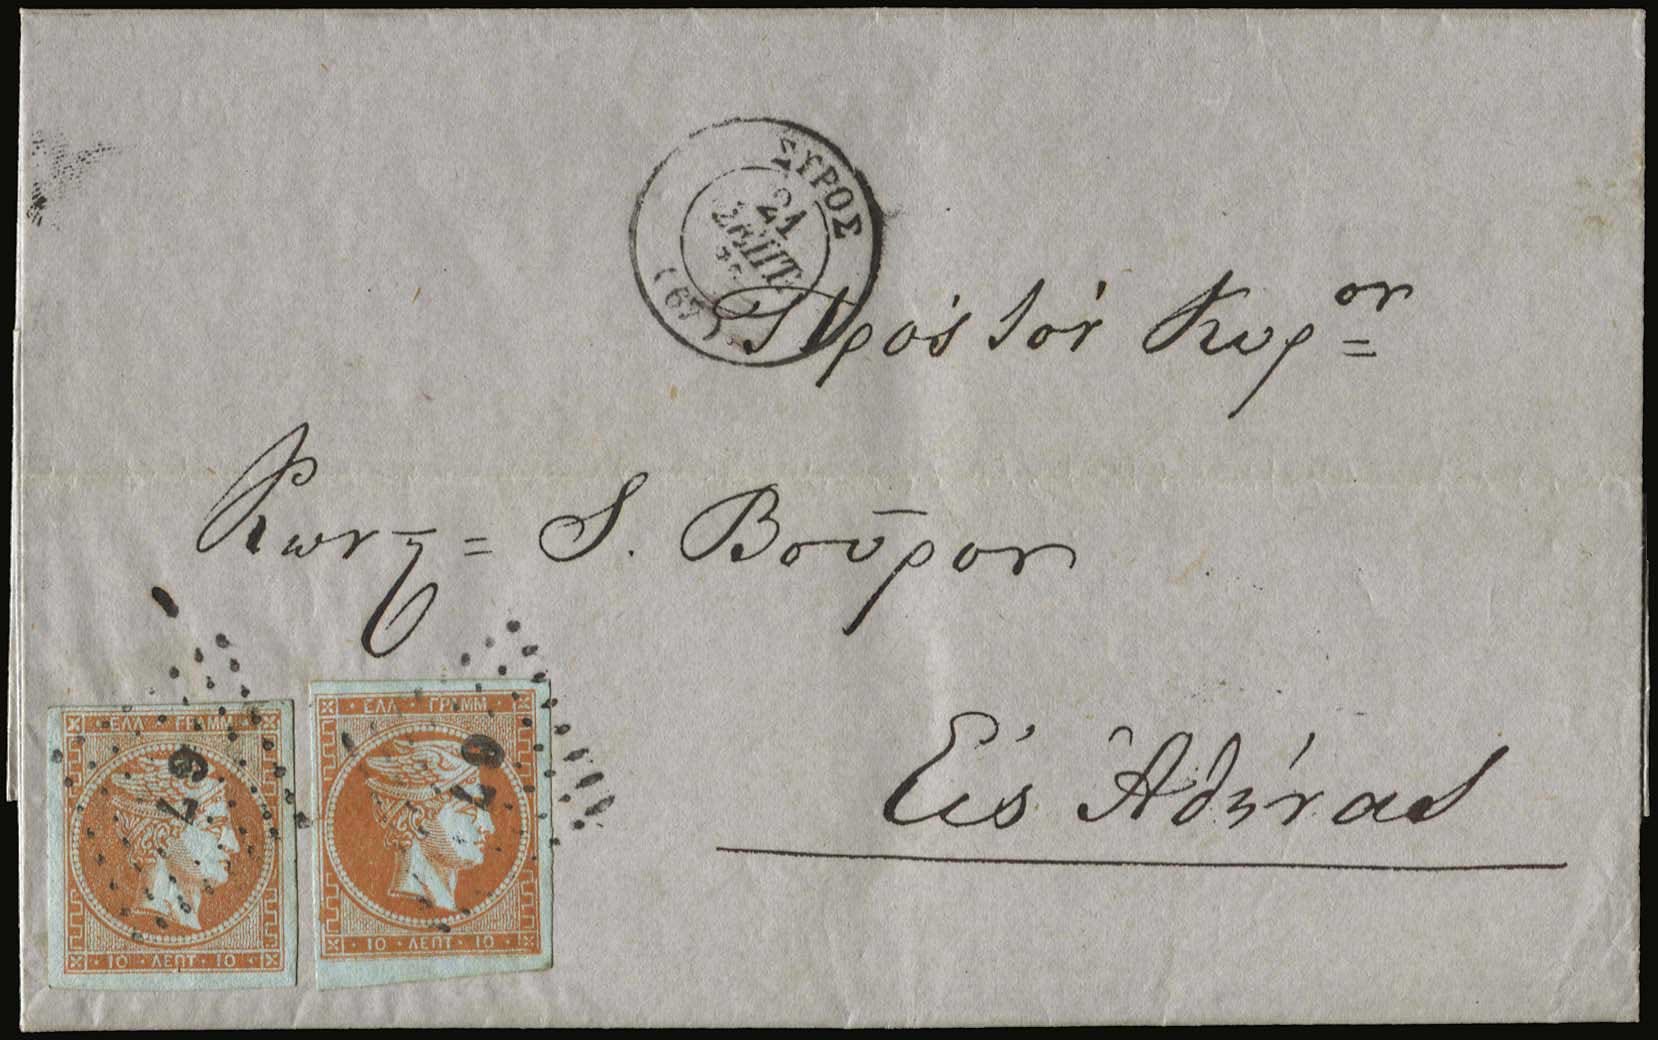 ΣΥΡΟΣ
21
ΣΕΠΤ.
(67)
Πρὸς τὸν Κυρ^ον
Κων^τ = Σ. Βοῦρον
Εἰς Ἀθήνας
67
67
ΕΛΛ · ΓΡΑΜΜ
10 · ΛΕΠΤ · 10
ΕΛΛ · ΓΡΑΜΜ
10 · ΛΕΠΤ · 10